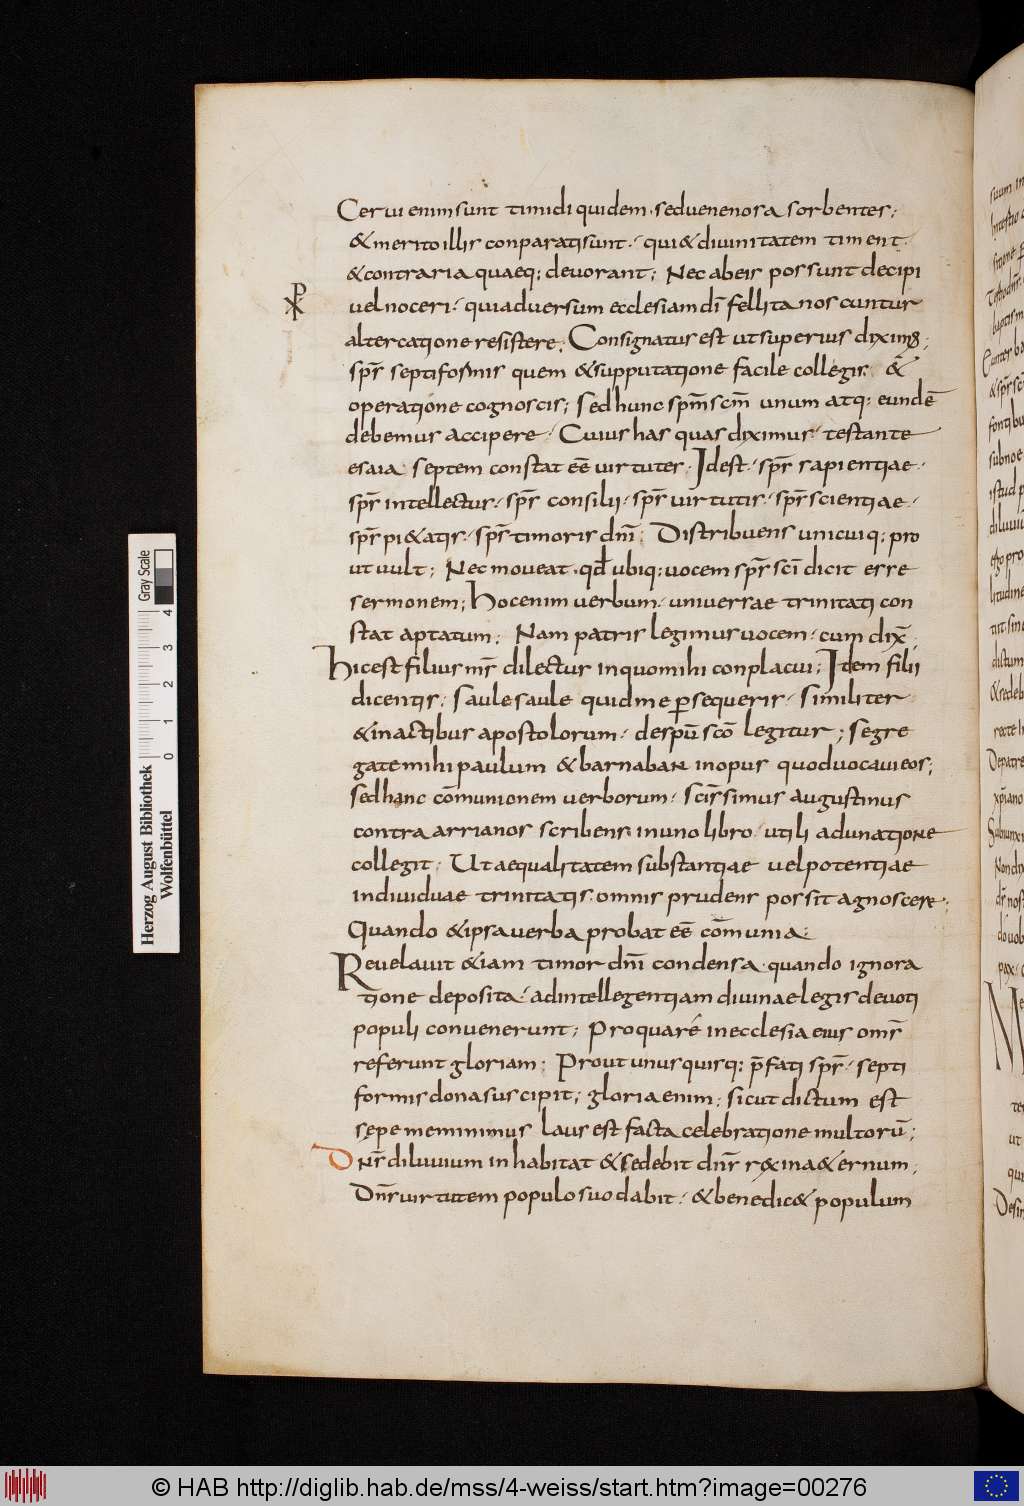 Cerui enim sunt timidi quidem, sed uenenosa sorbentes;
& merito illis conparati sunt, qui & diuinitatem timent,
& contraria quaeq; deuorant; Nec ab eis possunt decipi
uel noceri, qui aduersum ecclesiam dī fellita noscuntur
altercatione resistere; Consignatus est ut superius diximus;
sps̄ septiformis quem & supputatione facile collegis &
operatione cognoscis; Sed hunc spm̄ scm̄ unum atq; eundē
debemus accipere. Cuius has quas diximus, testante
esaia septem constat eē uirtutes. Idest, sps̄ sapientiae,
sps̄ intellectus, sps̄ consilii, sps̄ uirtutis, sps̄ scientiae,
sps̄ pi&atis, sps̄ timoris dnī; Distribuens unicuiq; pro
ut uult; Nec moueat, qđ ubiq; uocem sps̄ scī dicit esse
sermonem; Hoc enim uerbum, uniuersae trinitati con
stat aptatum; Nam patris legimus uocem, cum dix̄;
Hic est filius ms̄ dilectus in quo mihi conplacui; Idem filii
dicentis, saule saule quid me ꝑsequeris, Similiter
& in actibus apostolorum, de spū scō legitur; segre
gate mihi paulum & barnaban in opus quod uocaui eos;
Sed hanc cōmunionem uerborum, scis̄simus augustinus
contra arrianos scribens in uno libro, utili adunatione
collegit; Ut aequalitatem substantiae uel potentiae
indiuiduae trinitatis, omnis prudens possit agnoscere;
Quando & ipsa uerba probat eē cōmunia;
Reuelauit &iam timor dnī condensa, quando ignora
tione deposita, ad intellegentiam diuinae legis deuoti
populi conuenerunt; Pro qua ré in ecclesia eius oms̄
referunt gloriam; Prout unusquisq; p̄fati sps̄, septi
formis dona suscipit; gloria enim, sicut dictum est
sępe meminimus laus est facta celebratione multorū;
Dns̄ diluuium inhabitat & sedebit dns̄ rex in a&ernum;
Dns̄ uirtutem populo suo dabit, & benedic& populum
Herzog August Bibliothek
Wolfenbüttel
0 1 2 3 4
Gray Scale
© HAB http://diglib.hab.de/mss/4-weiss/start.htm?image=00276